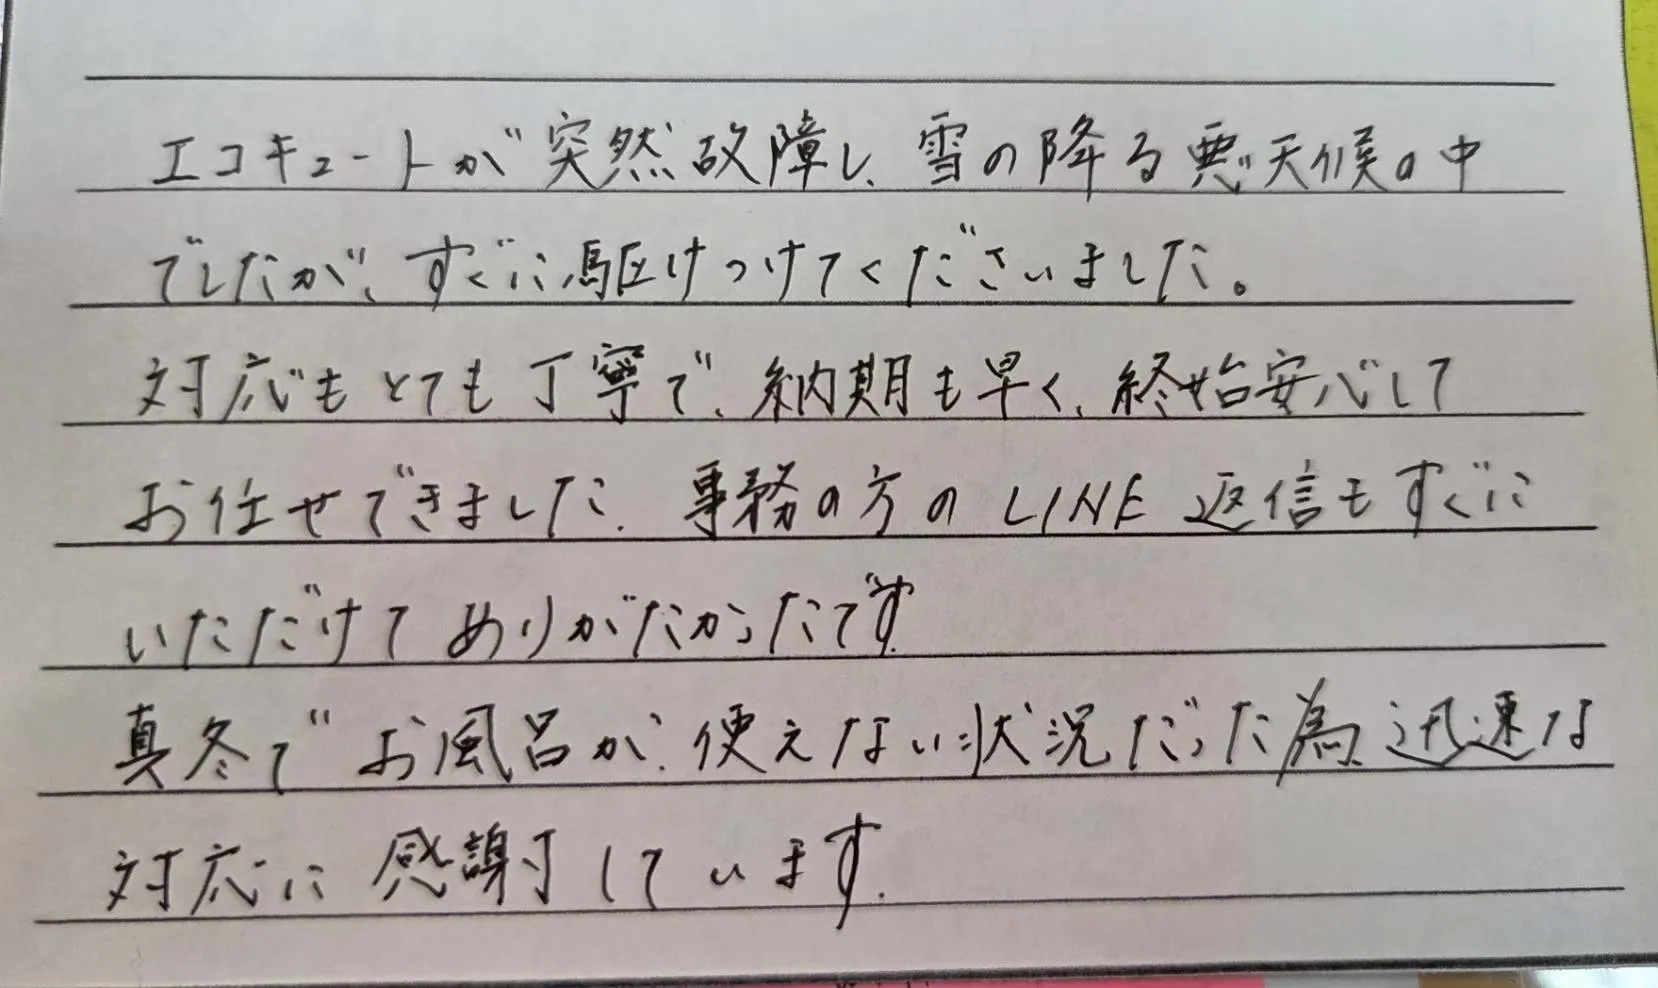 エコキュートが突然故障し、雪の降る悪天候の中
でしたが、すぐに駆けつけてくださいました。
対応もとても丁寧で、納期も早く、終始安心して
お任せできました。事務の方のLINE返信もすぐに
いただけてありがたかったです。
真冬でお風呂が、使えない状況だった為、迅速な
対応に感謝しています。